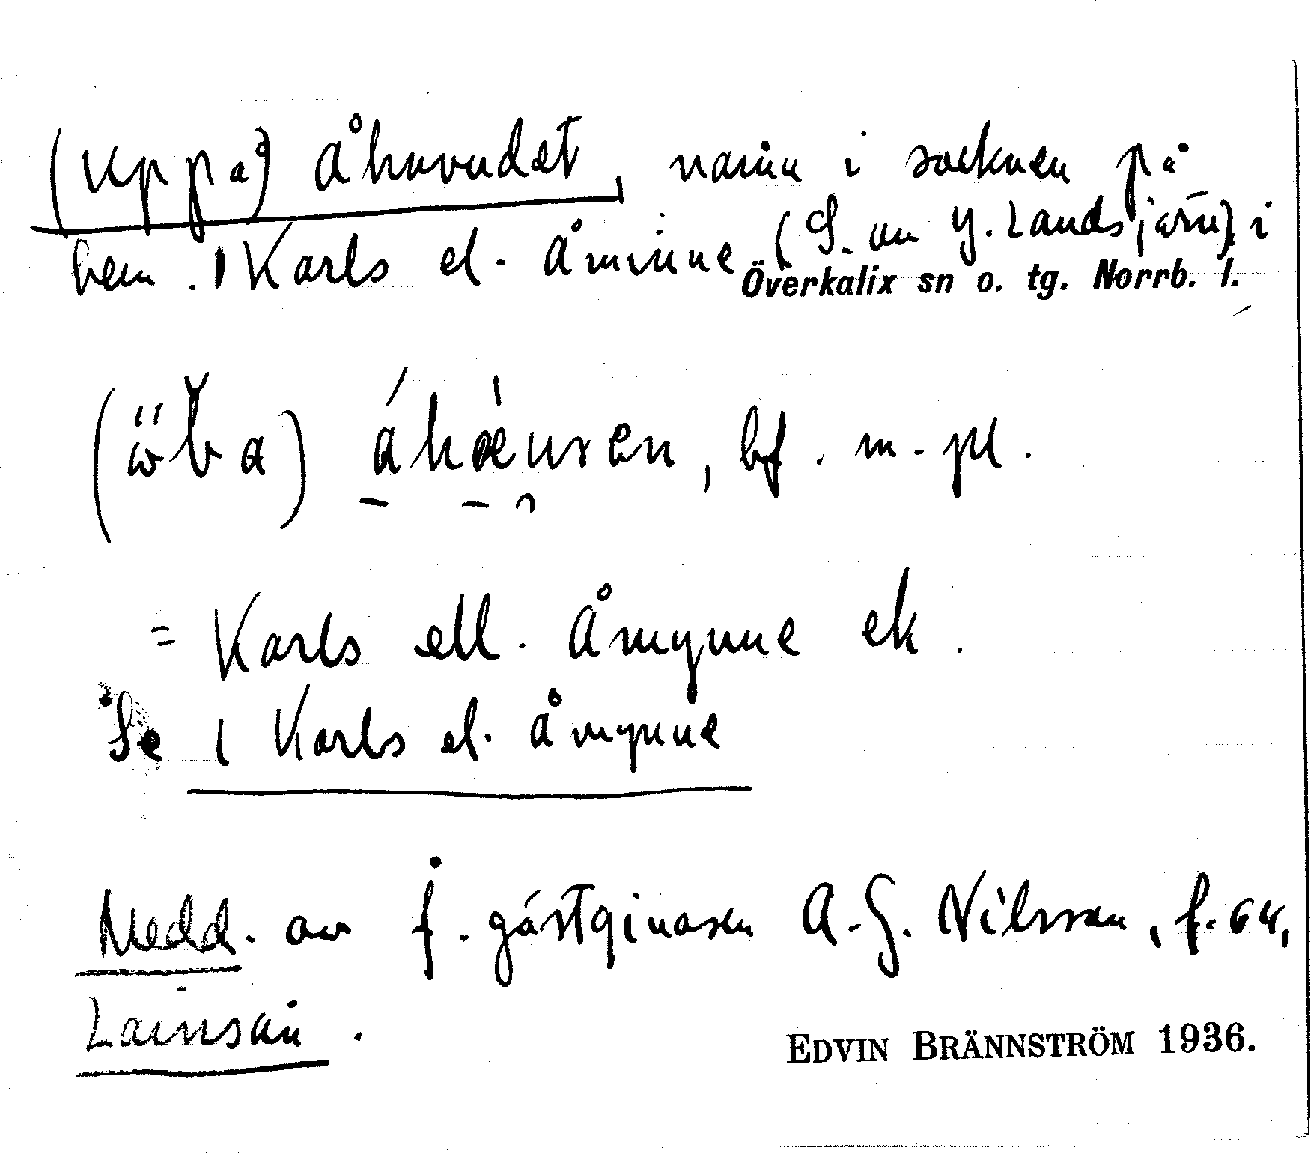 (uppå) åhuvudet, namn i socknen på
hem. 1 Karls el. Åminne (S. om Y. Landsjärv) i
Överkalix sn o. tg. Norrb. l.
áhæusen, bf. m. pl.
= Karls ell. Åmynne ek.
Se 1 Karls el. åmynne
Medd. av f. gästgivaren A. G. Nilsson, f. 64,
Lainsån.
EDVIN BRÄNNSTRÖM 1936.